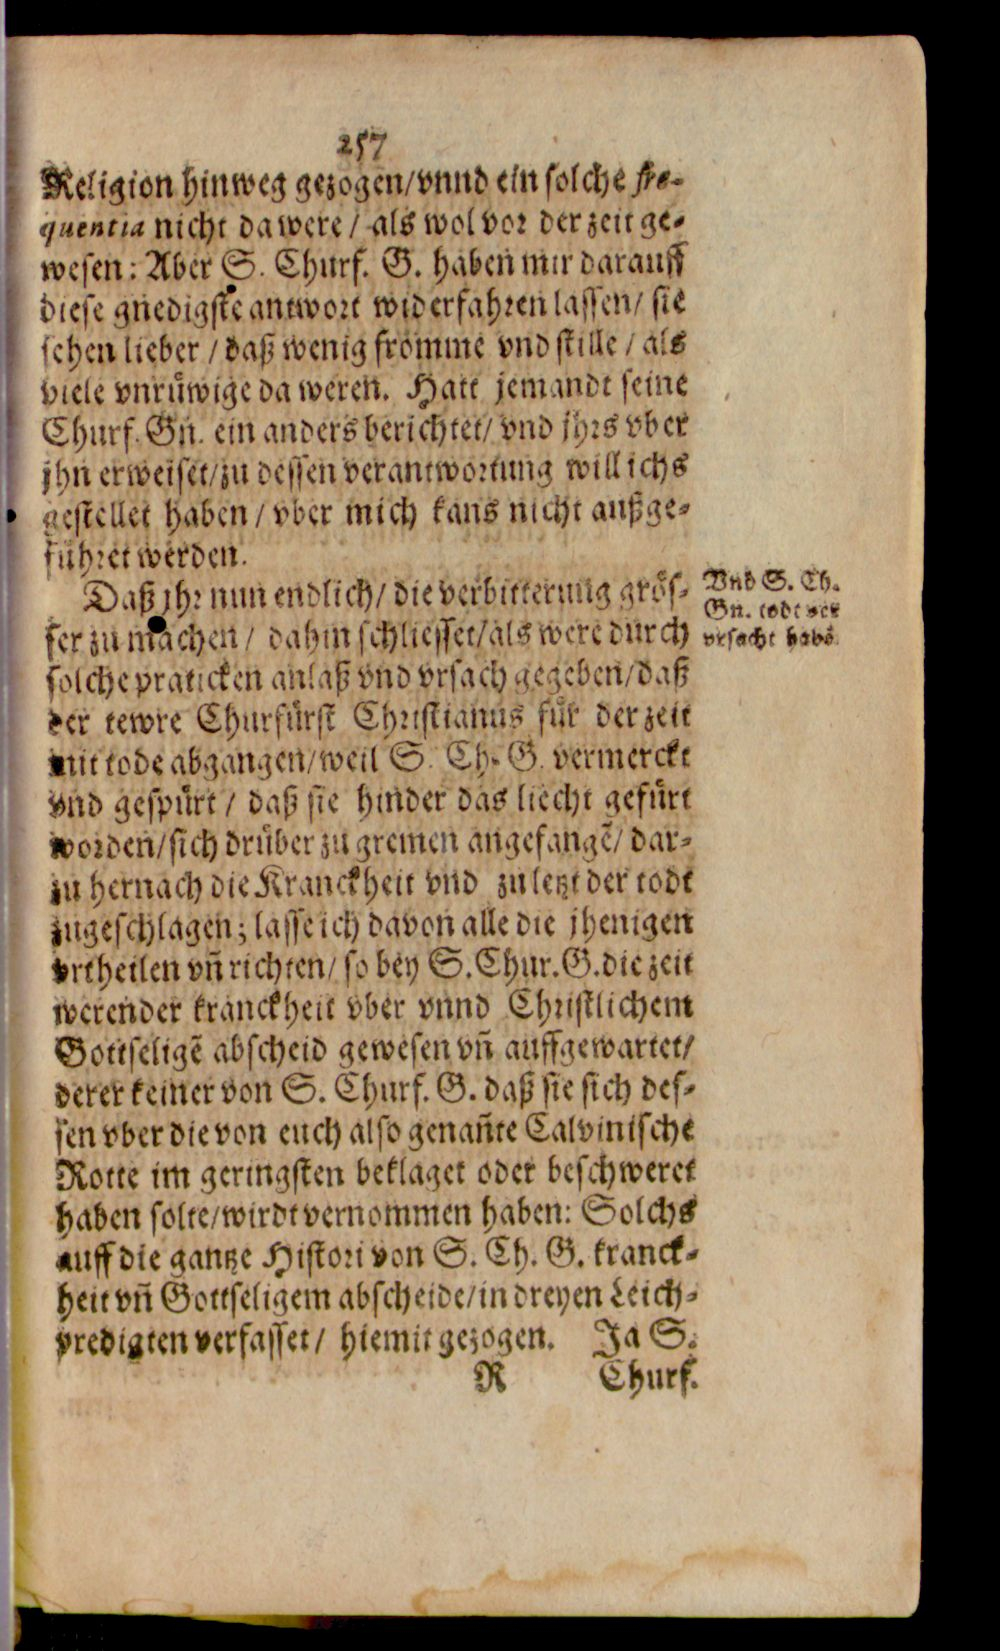 257
Religion hinweg gezogen/vnnd ein solche fre-
quentia nicht da were/ als wol vor der zeit ge-
wesen: Aber S. Churf. G. haben mir darauff
diese gnedigste antwort widerfahren lassen/ sie
sehen lieber/ daß wenig fromme vnd stille/ als
viele vnrüwige da weren. Hatt jemandt seine
Churf. Gn. ein anders berichtet/ vnd jhrs vber
jhn erweiset/zu dessen verantwortung will ichs
gestellet haben/ vber mich kans nicht außge-
führet werden.
Daß jhr nun endlich/ die verbitterung grös-
ser zu machen/ dahin schliesset/als were durch
solche praticken anlaß vnd vrsach gegeben/daß
der tewre Churfürst Christianus für der zeit
mit tode abgangen/weil S. Ch. G. vermerckt
vnd gespürt/ daß sie hinder das liecht gefürt
worden/sich drüber zu gremen angefangẽ/ dar-
zu hernach die Kranckheit vnd zu letzt der todt
zugeschlagen; lasse ich davon alle die jhenigen
vrtheilen vñ richten/ so bey S. Chur. G. die zeit
werender kranckheit vber vnnd Christlichem
Gottseligẽ abscheid gewesen vñ auffgewartet/
derer keiner von S. Churf. G. daß sie sich des-
sen vber die von euch also genañte Calvinische
Rotte im geringsten beklaget oder beschweret
haben solte/wirdt vernommen haben: Solchs
auff die gantze Histori von S. Ch. G. kranck-
heit vñ Gottseligem abscheide/in dreyen Leich-
predigten verfasset/ hiemit gezogen. Ja S.
R Churf.
Vnd S. Ch.
Gn. todt ver
vrsacht habẽ.